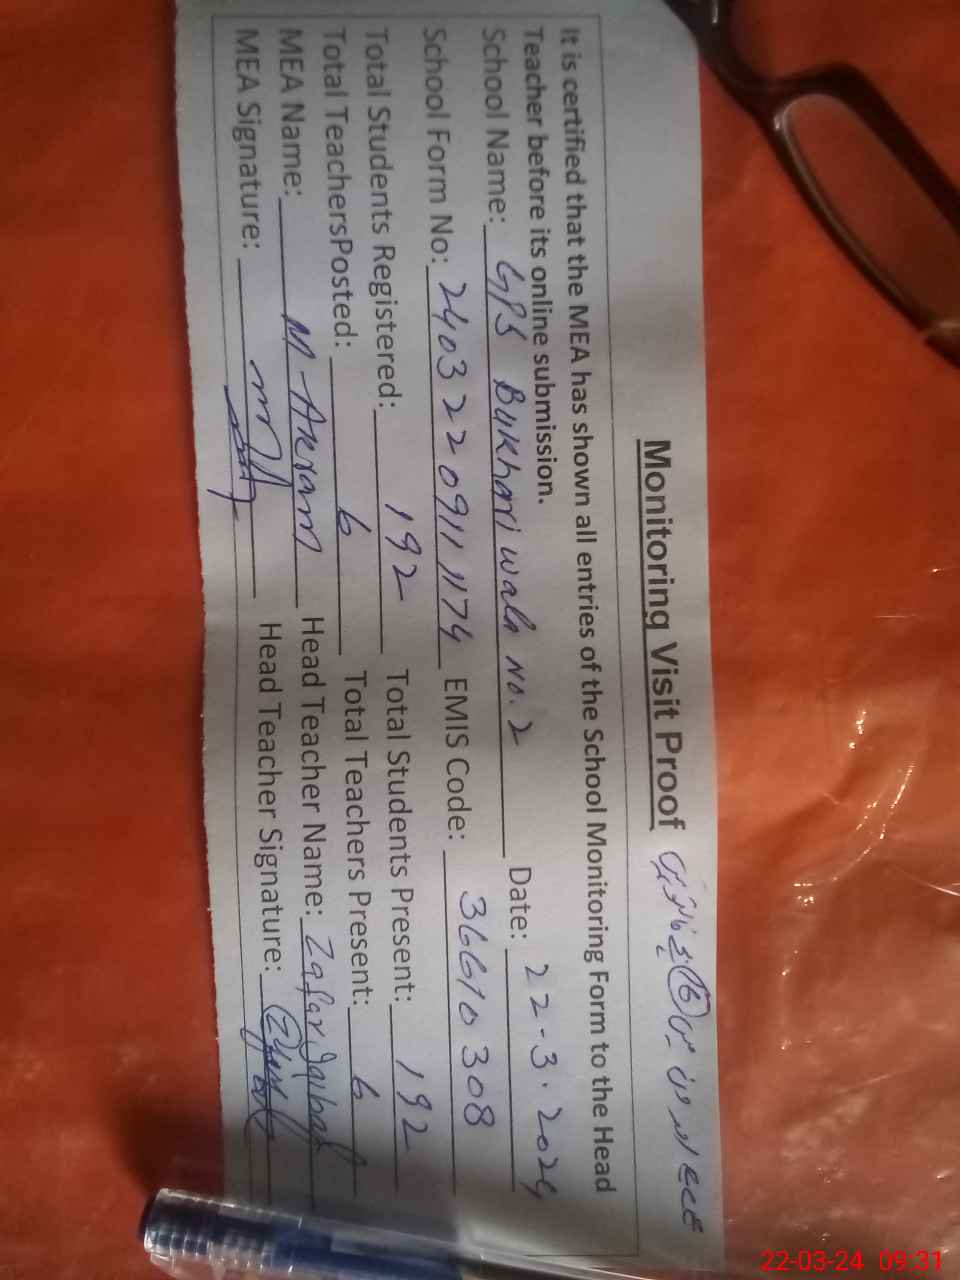 Monitoring Visit Proof
It is certified that the MEA has shown all entries of the School Monitoring Form to the Head
Teacher before its online submission.
School Name: GPS Bukhari wala No. 2 Date: 22-3-2024
School Form No: 24032209111174 EMIS Code: 36610308
Total Students Registered: 192 Total Students Present: 192
Total TeachersPosted: 6 Total Teachers Present: 6
MEA Name: M. Akram Head Teacher Name: Zafar Iqbal
MEA Signature: Head Teacher Signature:
22-03-24 09:31